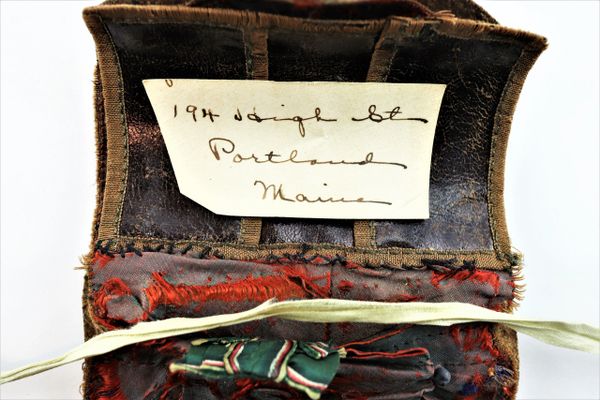 194 High St
Portland
Maine